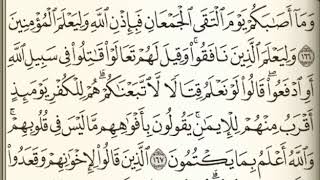 وَمَآ أَصَٰبَكُمۡ يَوۡمَ ٱلۡتَقَى ٱلۡجَمۡعَانِ فَبِإِذۡنِ ٱللَّهِ وَلِيَعۡلَمَ ٱلۡمُؤۡمِنِينَ
١٦٦ وَلِيَعۡلَمَ ٱلَّذِينَ نَافَقُواْۚ وَقِيلَ لَهُمۡ تَعَالَوۡاْ قَٰتِلُواْ فِي سَبِيلِ ٱللَّهِ
أَوِ ٱدۡفَعُواْۖ قَالُواْ لَوۡ نَعۡلَمُ قِتَالٗا لَّٱتَّبَعۡنَٰكُمۡۗ هُمۡ لِلۡكُفۡرِ يَوۡمَئِذٍ
أَقۡرَبُ مِنۡهُمۡ لِلۡإِيمَٰنِۚ يَقُولُونَ بِأَفۡوَٰهِهِم مَّا لَيۡسَ فِي قُلُوبِهِمۡۚ
وَٱللَّهُ أَعۡلَمُ بِمَا يَكۡتُمُونَ ١٦٧ ٱلَّذِينَ قَالُواْ لِإِخۡوَٰنِهِمۡ وَقَعَدُواْ